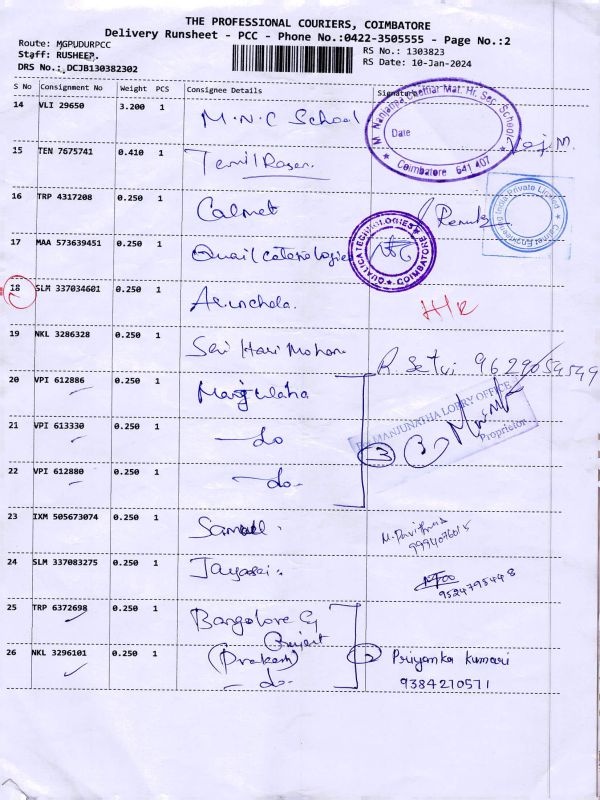 THE PROFESSIONAL COURIERS, COIMBATORE
Delivery Runsheet - PCC - Phone No.:0422-3505555 - Page No.:2
Route: MGPUDURPCC
Staff: RUSHEEP.
DRS No.: DCJB130382302
RS No.: 1303823
RS Date: 10-Jan-2024
S No Consignment No Weight PCS Consignee Details Signature
14 VLI 29650 3.200 1 M.N.C School
Mat. Hr. Sec. School
Date
Coimbatore 641 407
15 TEN 7675741 0.410 1
16 TRP 4317208 0.250 1 Calmet
India Private Limited
17 MAA 573639451 0.250 1
QUALICA TECHNOLOGIES COIMBATORE
18 SLM 337034601 0.250 1 Arunchala.
19 NKL 3286328 0.250 1 Sri Hari Mohan
R Selvi 9629059549
20 VPI 612886 0.250 1
21 VPI 613330 0.250 1 do
MANJUNATHA LORRY OFFICE
Proprietor
3 3
22 VPI 612880 0.250 1 do
23 IXM 505673074 0.250 1
M. Pavithra
9994076015
24 SLM 337083275 0.250 1
9524795448
25 TRP 6372698 0.250 1 Bangalore
26 NKL 3296101 0.250 1 (Prakash)
do
2 Priyanka kumari
9384270571